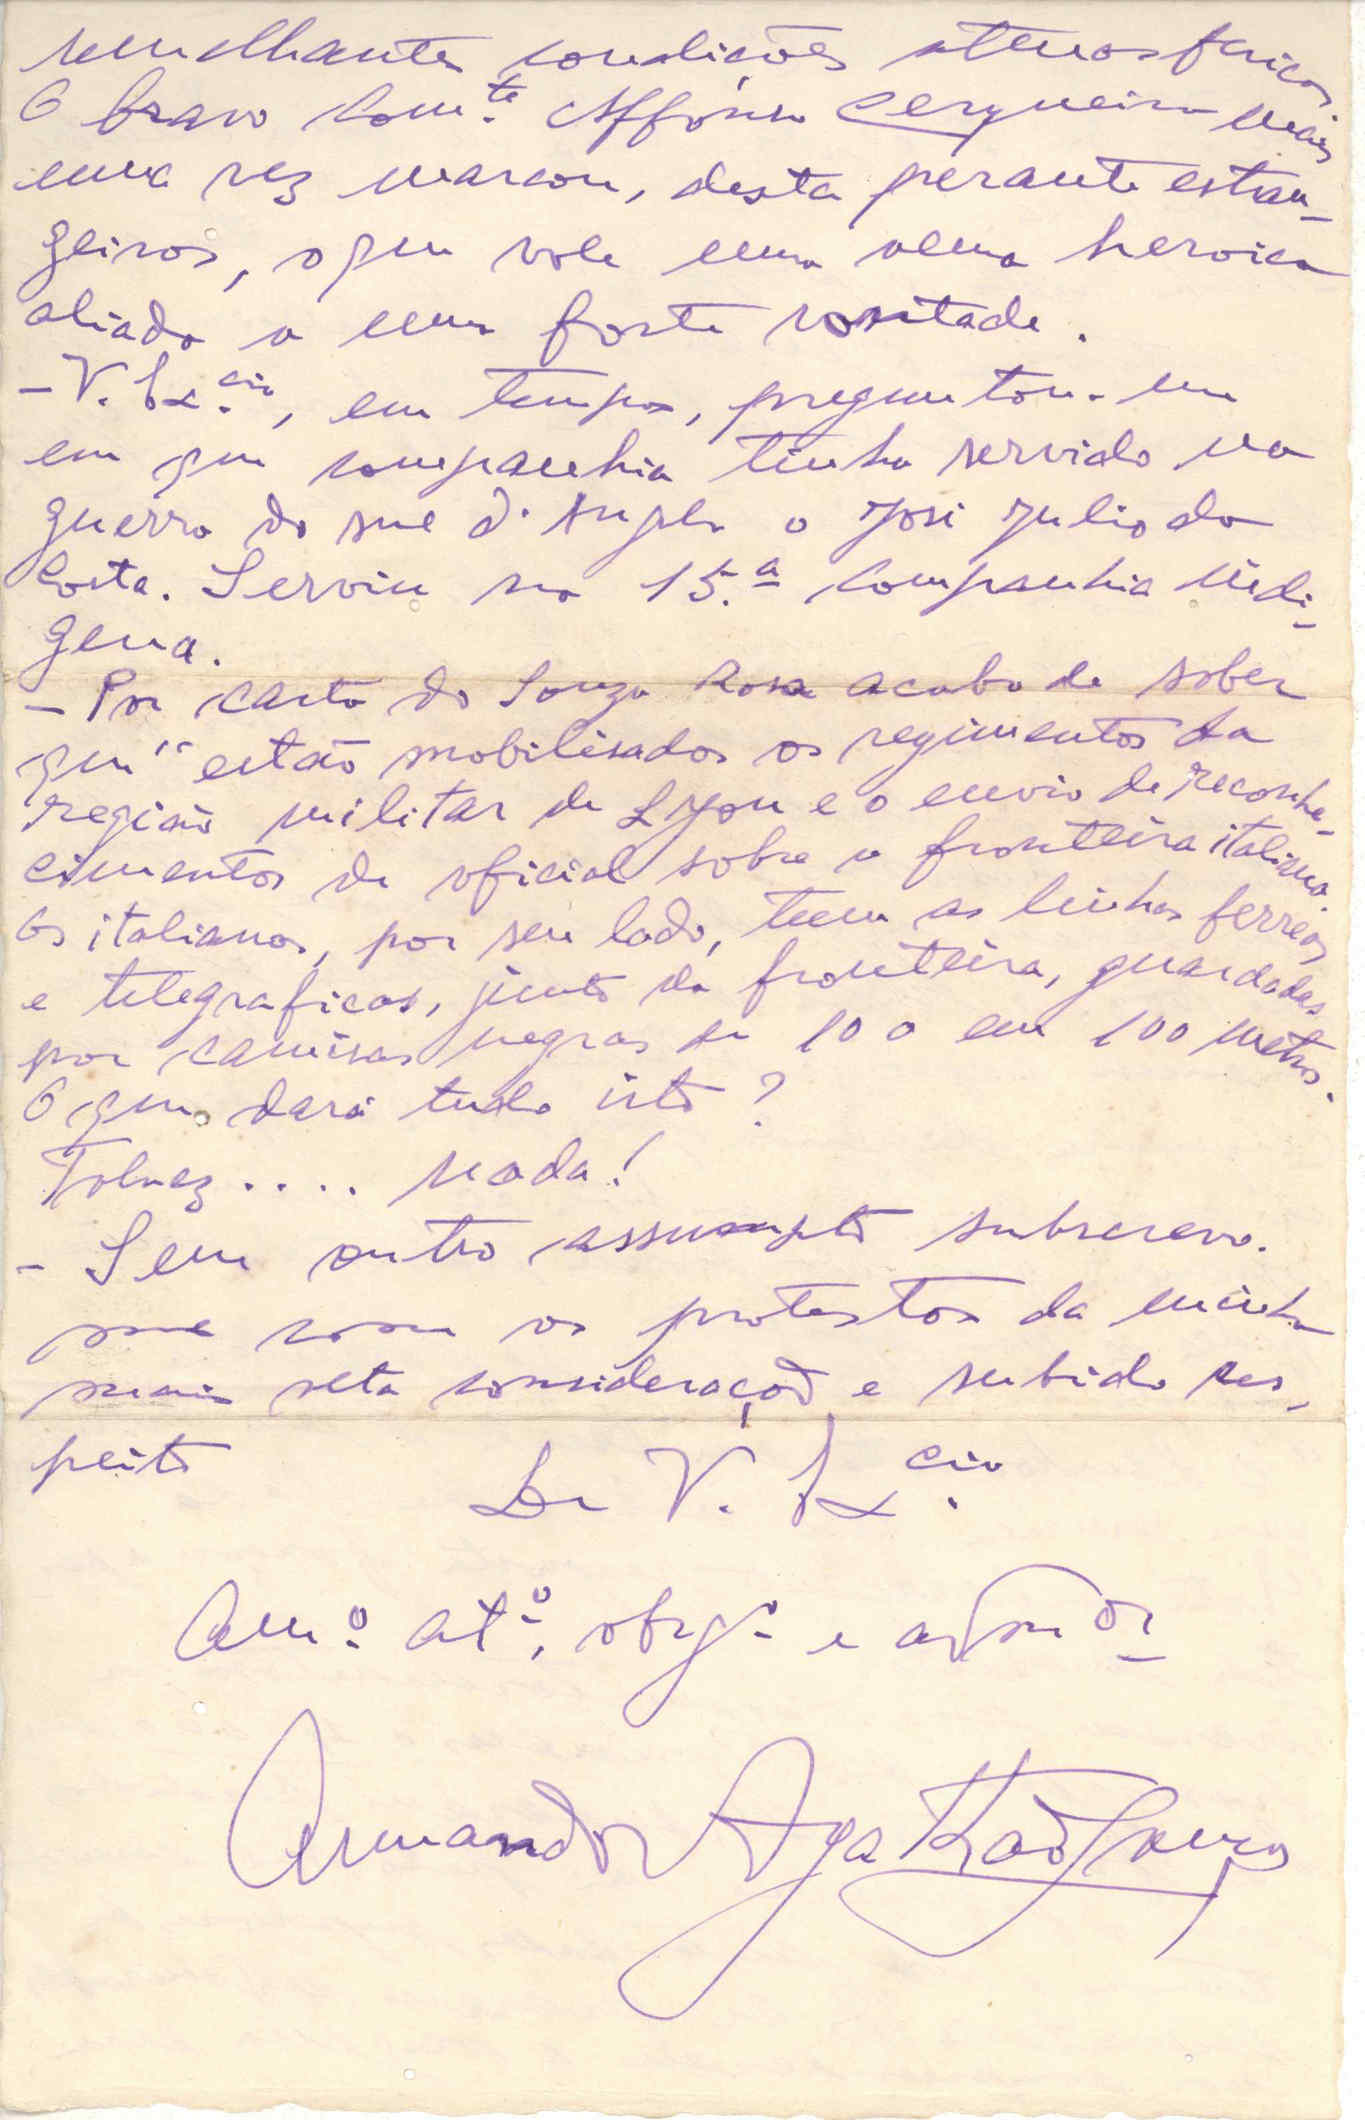 semelhantes condições atmosfericas
O bravo Com.te Affonso Cerqueira mais
uma vez marcou, desta perante estran-
geiros, o que vale uma alma heroica
aliada a uma forte vontade.
- V. Ex.cia, em tempos, preguntou-me
em que companhia tinha servido na
guerra do sul d'Angola o José Julio da
Costa. Serviu na 15.ª Companhia indi-
gena.
- Por carta do Souza Rosa acabo de saber
que "estão mobilisados os regimentos da
região militar de Lyon e o envio de reconhe-
cimentos de oficial sobre a fronteira italiana.
Os italianos, por seu lado, teem as linhas ferreas
e telegraficas, junto da fronteira, guardadas
por camisas negras de 100 em 100 metros.
O que dará tudo isto?
Talvez.... nada!
- Sem outro assumpto subscrevo-
me com os protestos da minha
mais alta consideração e subido res-
peito
De V. Ex.cia
Am.º at.º, obg.º e admor
Armando Agatão Lança